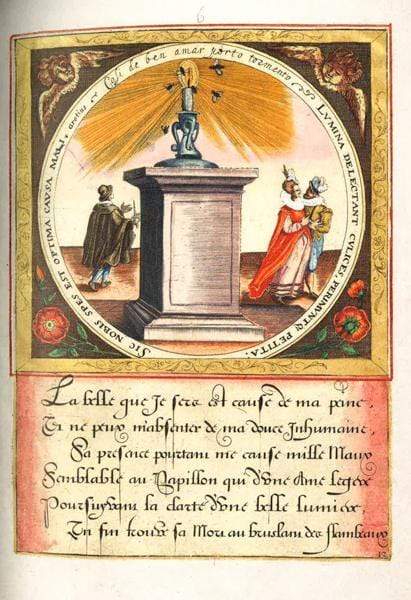 6
Cosi de ben amar porto tormento
LVMINA DELECTANT CVLICES, PERIMVNTQ PETITA:
SIC NOBIS SPES EST OPTIMA CAVSA MALI.
La belle que Je sers est cause de ma peine,
Et ne peux mabsenter de ma douce Inhumaine,
Sa presence pourtant me cause mille Maux
Semblable au Papillon qui d'vne Ame legere
Poursuyvant la clarte d'vne belle lumiere,
En fin trouve sa Mort au bruslant des flambeaux